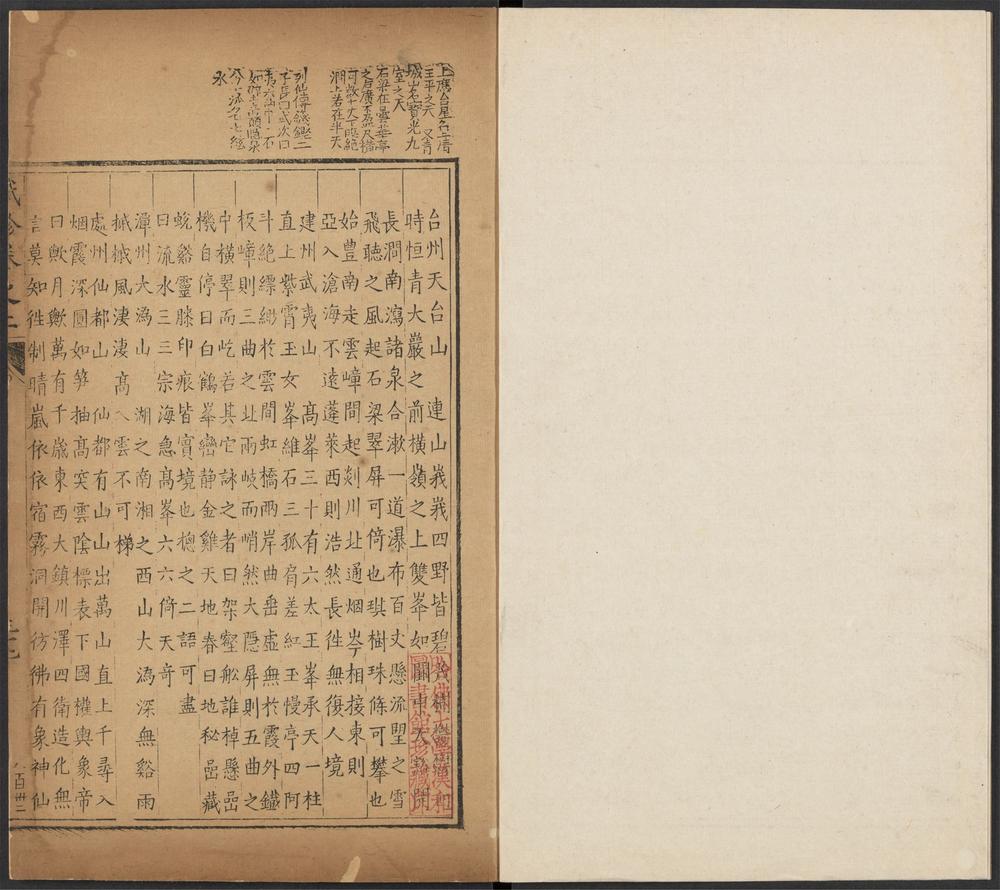 上應台星名上清
玉平之天 又青
城山名寶光九
室之天
石梁在曇華亭
之
可數十丈下臨絕
澗上若在半天
台州天台山 連山峩峩四野皆碧
時恒青大巖之前橫嶺之上雙峯如
長澗南瀉諸泉合漱一道瀑布百丈懸流望之雪
飛聽之風起石梁翠屏可倚也琪樹珠條可攀也
始豊南走雲嶂間起剡川北通烟岑相接東則
亞入滄海不遠蓬萊西則浩然長徃無復人境
建州武夷山 高峯三十有六太王峯承天一柱
直上紫霄玉女峯維石三孤肩差紅玉慢亭四阿
斗絕縹緲於雲間虹橋兩岸曲壘虛無於霞外鐵
板嶂則三曲之北兩岐而峭然大隱屏則五曲之
中橫翠而屹若其它詠之者曰架壑船誰棹懸嵒
機自停曰白鶴峯巒静金雞天地春曰地秘嵒藏
蛻谿靈膝印痕皆實境也摠之二語可盡
曰流水三三宗海急高峯六六倚天奇
潭州大溈山 湖之南湘之西山大溈深無谿雨
摵摵風淒淒高入雲不可梯
處州仙都山 仙都有山山出萬山直上千尋入
烟霞深圓如笋抽高突雲陰標表下國權輿象帝
曰歟月歟萬有千歲東西大鎮川澤四衛造化無
言莫知徃制晴嵐依依宿霧洞開彷彿有象神仙